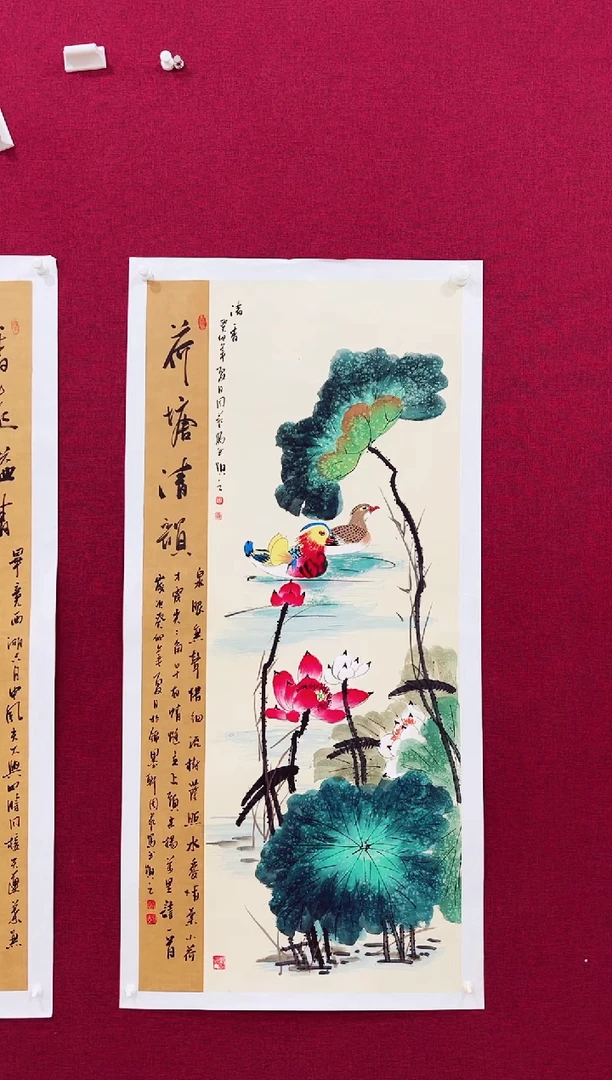 清香
癸卯年夏日
荷塘清韻
泉眼無聲惜細流樹蔭照水愛晴柔小荷
才露尖尖角早有蜻蜓立上頭 楊萬里詩一首
歲次癸卯年夏日於
香遠益清
畢竟西湖六月中風光不與四時同接天蓮葉無